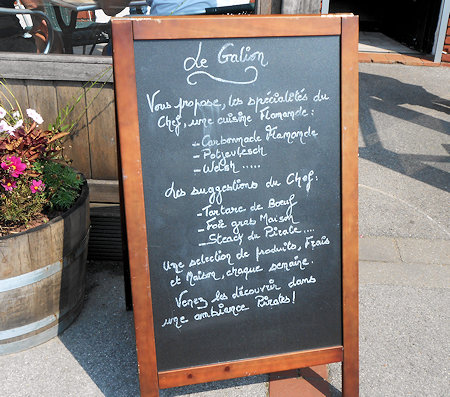 Le Galion
Vous propose, les spécialités du
Chef, une cuisine Flamande :
- Carbonnade Flamande
- Potjevlesch
- Welsh .....
Les suggestions du Chef :
- Tartare de Boeuf
- Foie gras Maison
- Steack du Pirate ....
Une selection de produits, Frais
et Maison, chaque semaine.
Venez les découvrir dans
une ambiance Pirates !